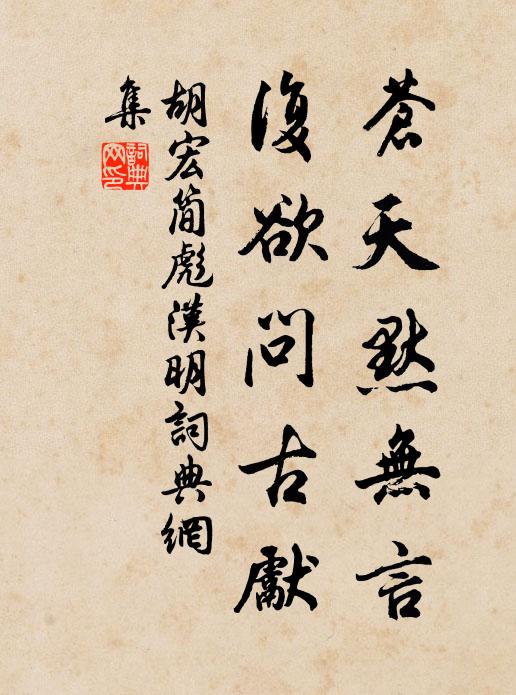 蒼天默無言
復欲問古獻
胡宏簡彪漢明詞典網
集
詞典
網印